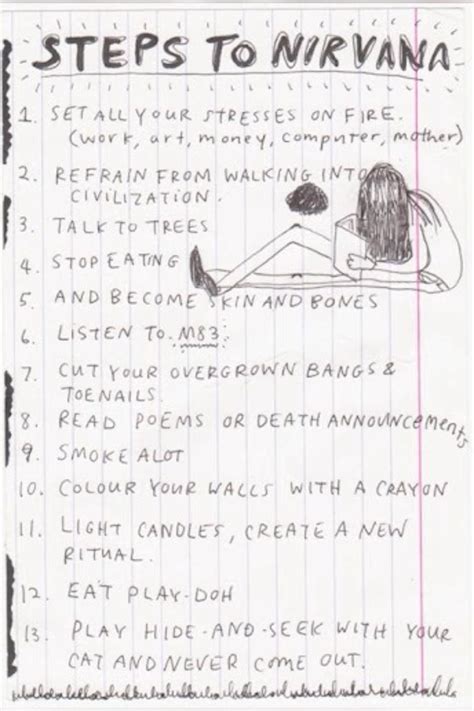 STEPS TO NIRVANA
1. SET ALL YOUR STRESSES ON FIRE.
(work, art, money, computer, mother)
2. REFRAIN FROM WALKING INTO
CIVILIZATION.
3. TALK TO TREES
4. STOP EATING
5. AND BECOME SKIN AND BONES
6. LISTEN TO M83.
7. CUT YOUR OVERGROWN BANGS &
TOENAILS.
8. READ POEMS OR DEATH ANNOUNCEMENTS
9. SMOKE ALOT
10. COLOUR YOUR WALLS WITH A CRAYON
11. LIGHT CANDLES, CREATE A NEW
RITUAL.
12. EAT PLAY-DOH
13. PLAY HIDE-AND-SEEK WITH YOUR
CAT AND NEVER COME OUT.